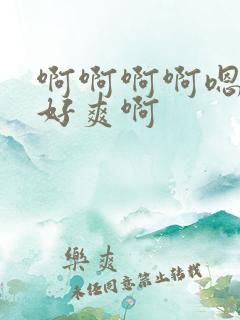 啊啊啊啊嗯
好爽啊
樂爽
未经同意禁止转载